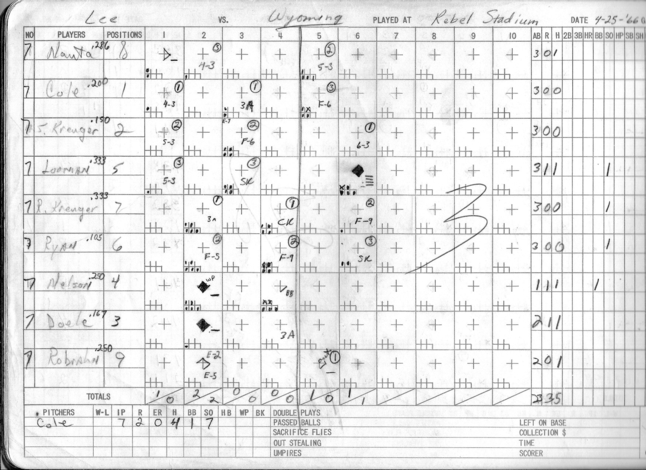 Lee VS. Wyoming PLAYED AT Rebel Stadium DATE 4-25-'66
NO PLAYERS POSITIONS 1 2 3 4 5 6 7 8 9 10 AB R H 2B 3B HR BB SO HP SB SH
7 Nauta .286 8 ③ 4-3 ② 5-3 3 0 1
7 Cole .200 1 ① 4-3 ① 3A ③ F-6 3 0 0
7 J. Kreuger .150 2 ② 5-3 ② F-6 ① 6-3 3 0 0
7 Lorman .333 5 ③ 5-3 ③ SK 3 1 1 1
7 R. Kreuger .333 7 ① 3A ① CK ② F-9 3 0 0 1
7 Ryan .105 6 ② F-5 ② F-9 ③ SK 3 0 0 1
7 Nelson .250 4 WP BB 1 1 1 1
7 Doele .167 3 3A 2 1 1
7 .250 9 E-2 E-5 ① 2 0 1
3
TOTALS 1 0 2 2 0 0 0 0 1 0 1 1 23 3 5
PITCHERS W-L IP R ER H BB SO HB WP BK DOUBLE PLAYS
Cole 7 2 0 4 1 7 PASSED BALLS LEFT ON BASE
SACRIFICE FLIES COLLECTION $
OUT STEALING TIME
UMPIRES SCORER